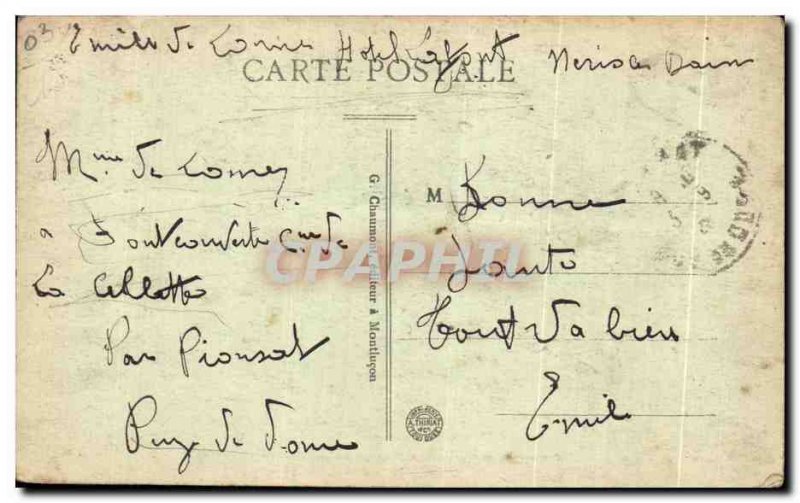 03 Emile de Lorme Hotel Lafont Neris les Bains
CARTE POSTALE
Mme de Lorme
a Fontcouverte Cne de
La Cellette
Par Pionsat
Puy de Dome
G. Chaumont, éditeur à Montluçon
M Bonne
Santé
Tout va bien
Emile
CPAPHIL
A. THIRIAT